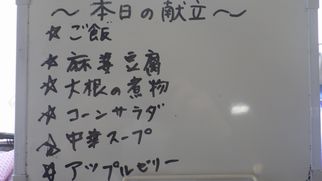 ～本日の献立～
☆ご飯
☆麻婆豆腐
☆大根の煮物
☆コーンサラダ
☆中華スープ
☆アップルゼリー